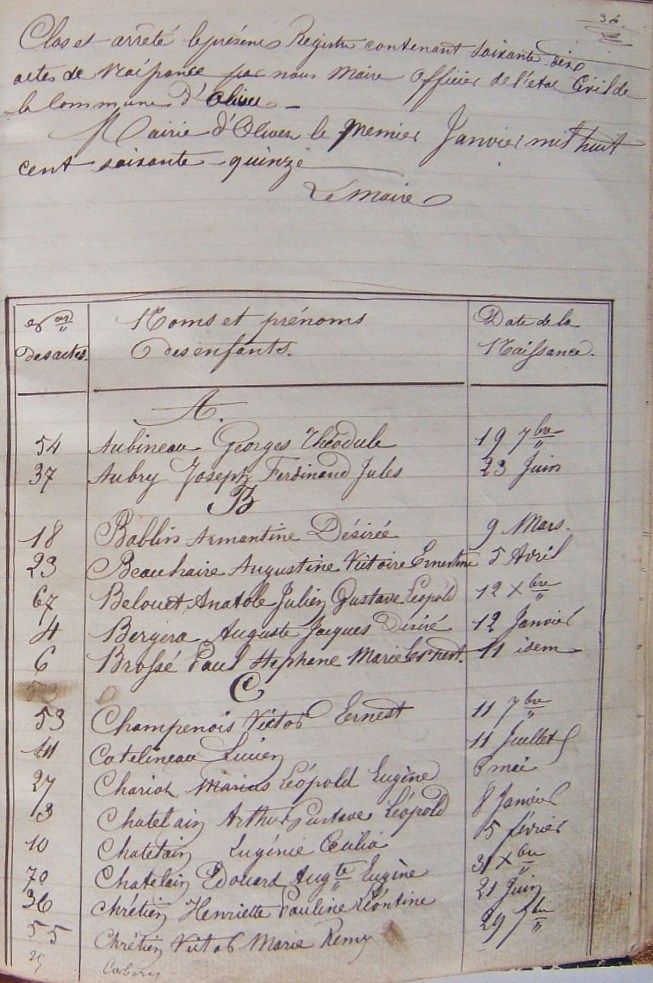 36
Clos et arrêté le présent Registre contenant soixante dix
actes de Naissance par nous Maire Officier de l'état Civil de
la Commune d'Olivet _
Mairie d'Olivet le premier Janvier mil huit
cent soixante - quinze
Le Maire
Nos des actes. Noms et prénoms des enfants. Date de la Naissance.
A.
54 Aubineau Georges Théodule 19 7bre
37 Aubry Joseph Ferdinand Jules 23 Juin
B
18 Bablin Armantine Désirée 9 Mars.
23 Beauhaire Augustine Victoire Ernestine 5 Avril
67 Belouet Anatole Julien Gustave Léopold 12 Xbre
4 Bergera Auguste Jacques Désiré 12 Janvier
6 Brossé Paul Stéphane Marie Ernest. 11 idem
C
53 Champenois Victor Ernest 11 7bre
41 Catelineau Lucien 11 Juillet
27 Chariot Marius Léopold Eugène 6 mai
13 Chatelain Arthur Gustave Léopold 8 Janvier
10 Chatelain Eugénie Célia 15 février
70 Chatelain Edouard Augte Eugène 31 Xbre
36 Chrétien Henriette Pauline Léontine 21 Juin
55 Chrétien Victor Marie Remy 29 7bre